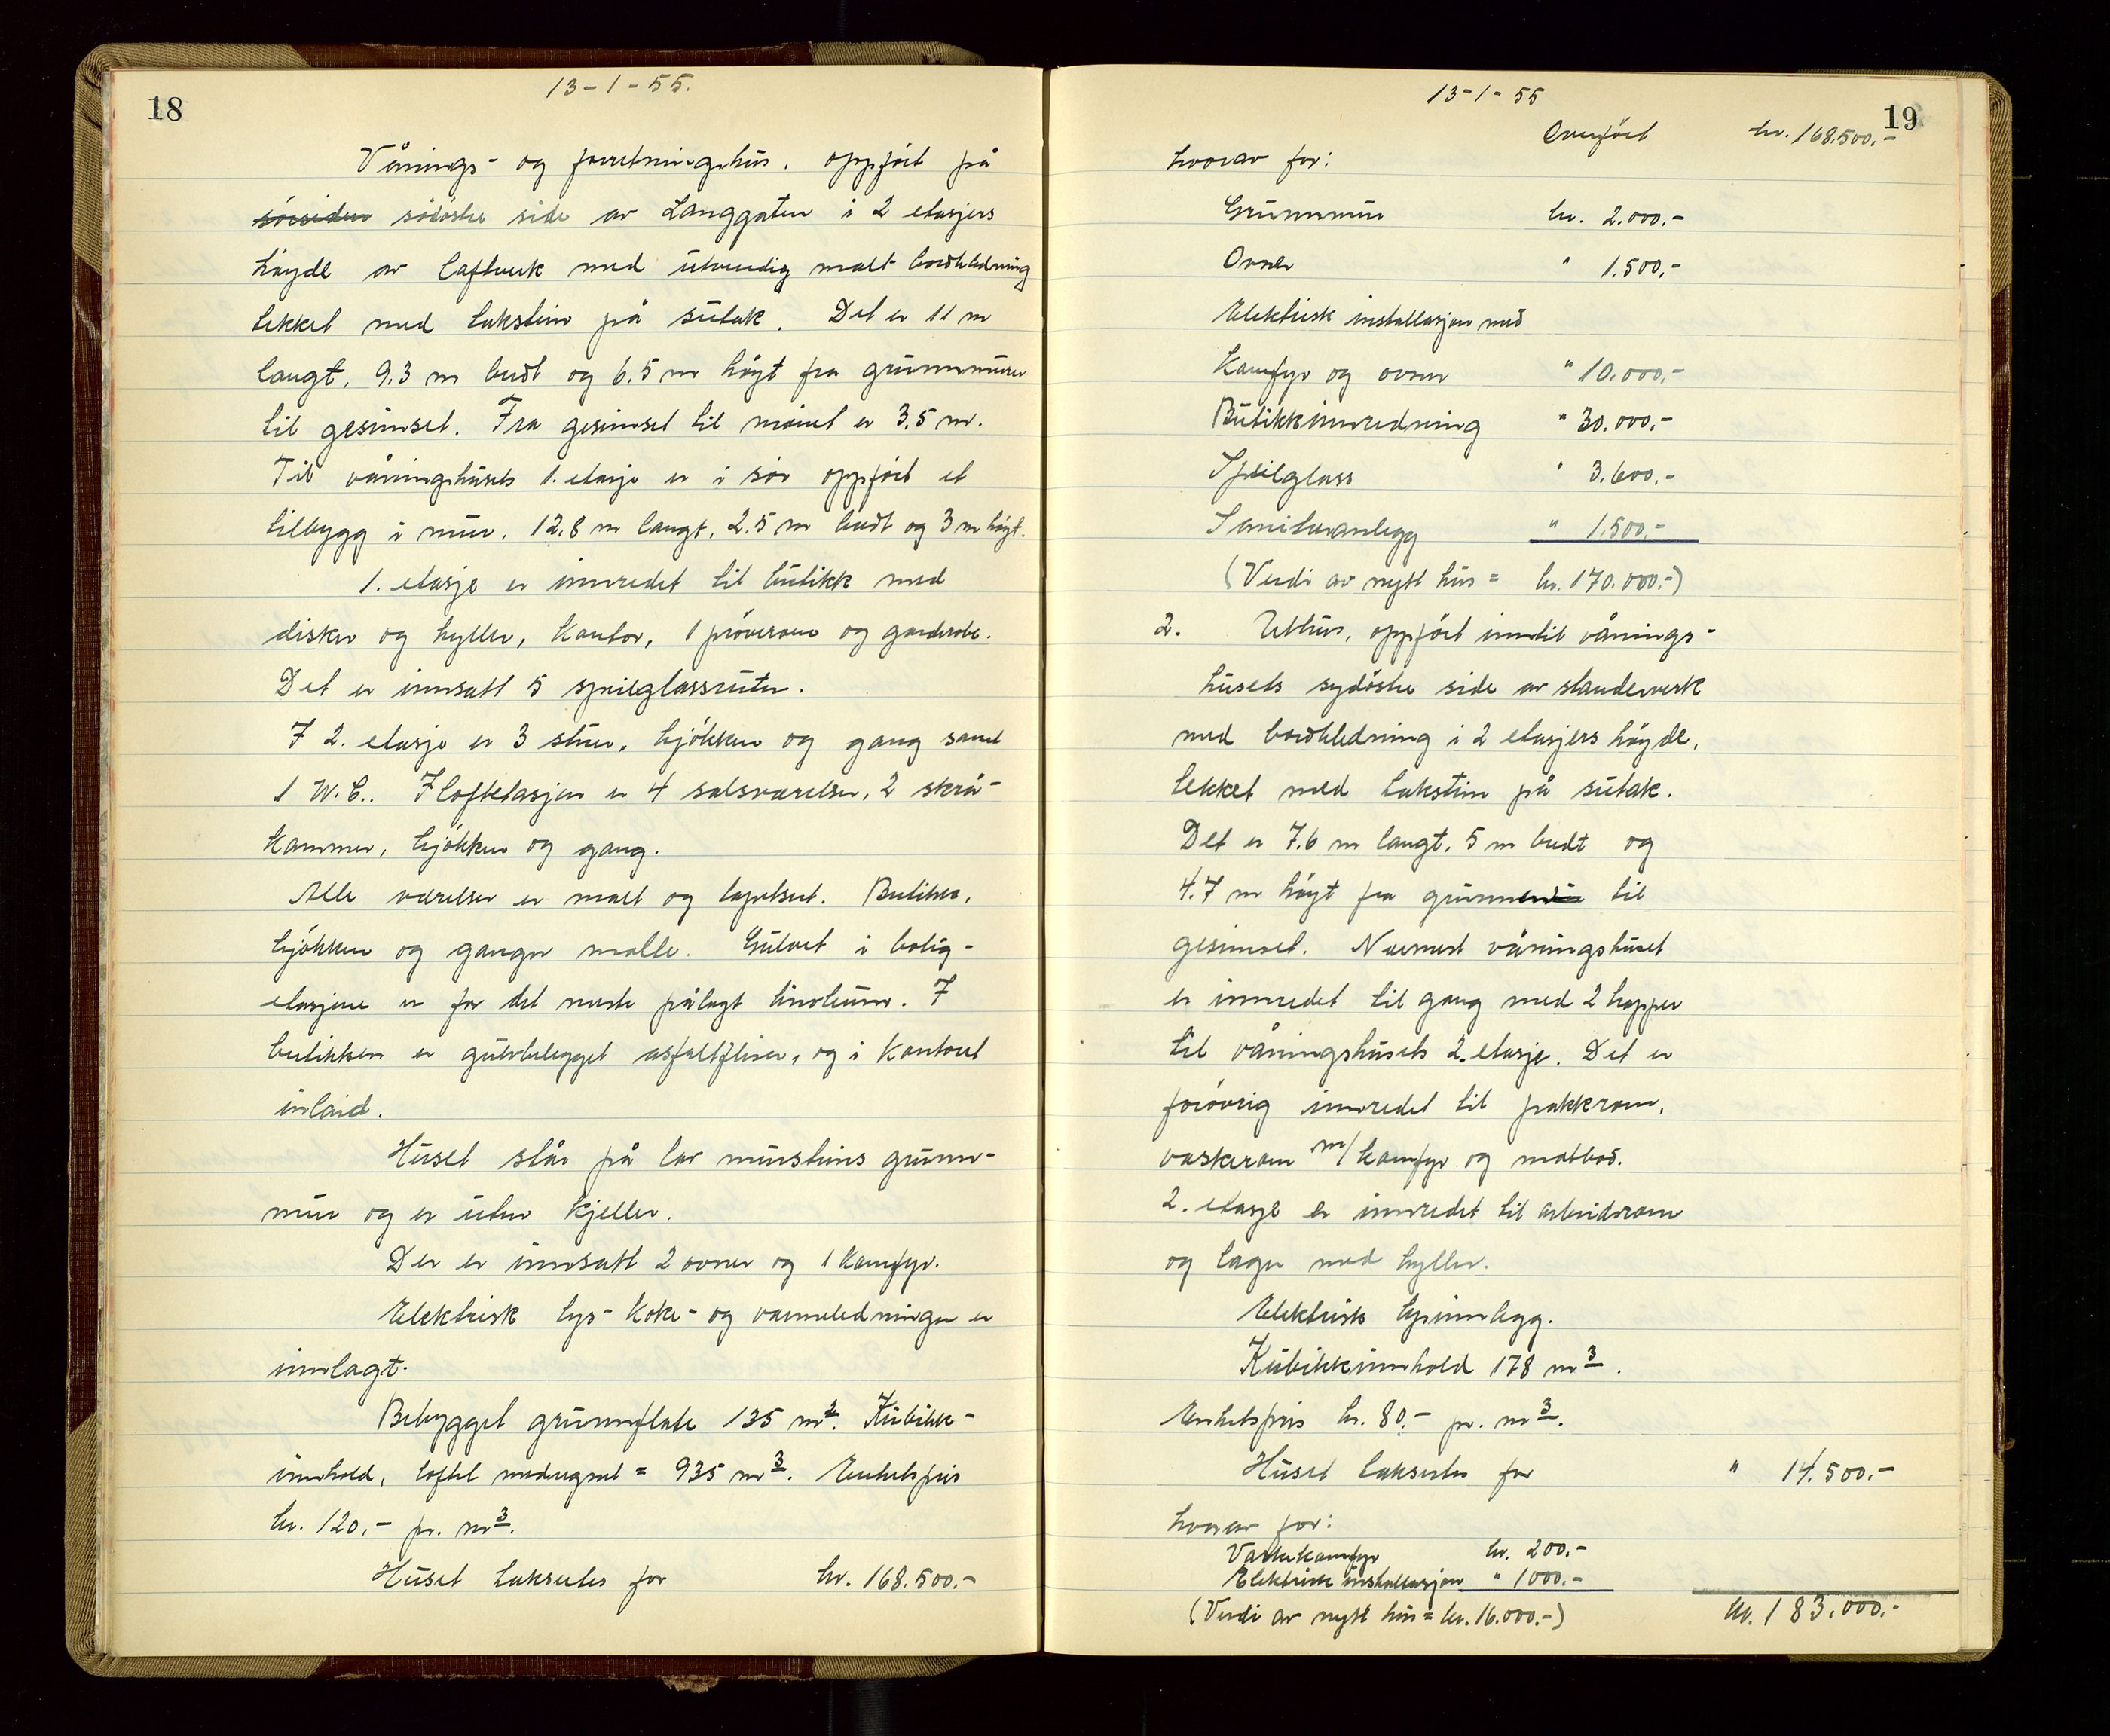 18
13-1-55.
Vånings- og forretningshus, oppført på
sørsiden sørøstre side av Langgaten i 2 etasjers
høyde av lafteverk med utvendig malt bordkledning
tekket med takstein på sutak. Det er 11 m
langt, 9.3 m bredt og 6.5 m høyt fra grunnmuren
til gesimset. Fra gesimset til mønet er 3,5 m.
Til våningshusets 1. etasje er i sør oppført et
tilbygg i mur, 12.8 m langt, 2.5 m bredt og 3 m høyt.
1. etasje er innredet til butikk med
disker og hyller, kontor, 1 prøverom og garderobe.
Det er innsatt 5 speilglassruter.
I 2. etasje er 3 stuer, kjøkken og gang samt
1 W.C.. I loftetasjen er 4 soveværelser, 2 skrå-
kammer, kjøkken og gang.
Alle værelser er malt og tapetsert. Butikk,
kjøkken og ganger malte. Gulvet i bolig-
etasjene er for det meste pålagt linoleum. I
butikken er gulvbelegget asfaltfliser, og i kontoret
inlaid.
Huset står på lav murstens grunn-
mur og er uten kjeller.
Der er innsatt 2 ovner og 1 komfyr.
Elektrisk lys- koke- og varmeledninger er
innlagt.
Bebygget grunnflate 135 m2. Kubikk-
innhold, loftet medregnet = 935 m3. Enhetspris
kr. 120,- pr. m3.
Huset takseres for kr. 168.500.-
13-1-55
19
Overført kr. 168.500,-
hvorav for:
Grunnmur kr. 2.000.-
Ovner " 1.500,-
Elektrisk installasjon med
Komfyr og ovner " 10.000,-
Butikkinnredning " 30.000,-
Speilglass " 3.600,-
Sanitæranlegg " 1.500,-
(Verdi av nytt hus = kr. 170.000.-)
2. Uthus, oppført inntil vånings-
husets sydøstre side av standerverk
med bordkledning i 2 etasjers høyde,
tekket med takstein på sutak.
Det er 7.6 m langt, 5 m bredt og
4.7 m høyt fra grunnen til
gesimset. Nærmest våningshuset
er innredet til gang med 2 trapper
til våningshusets 2. etasje. Det er
forøvrig innredet til pakkrom,
vaskerom m/komfyr og matbod.
2. etasje er innredet til arbeidsrom
og lager med hyller.
Elektrisk lysinnlegg.
Kubikkinnhold 178 m3.
Enhetspris kr. 80.- pr. m3.
Huset takseres for " 14.500.-
hvorav for:
Vaskekomfyr kr. 200.-
Elektrisk installasjon " 1000.-
(Verdi av nytt hus = kr. 16.000.-) kr. 183.000.-